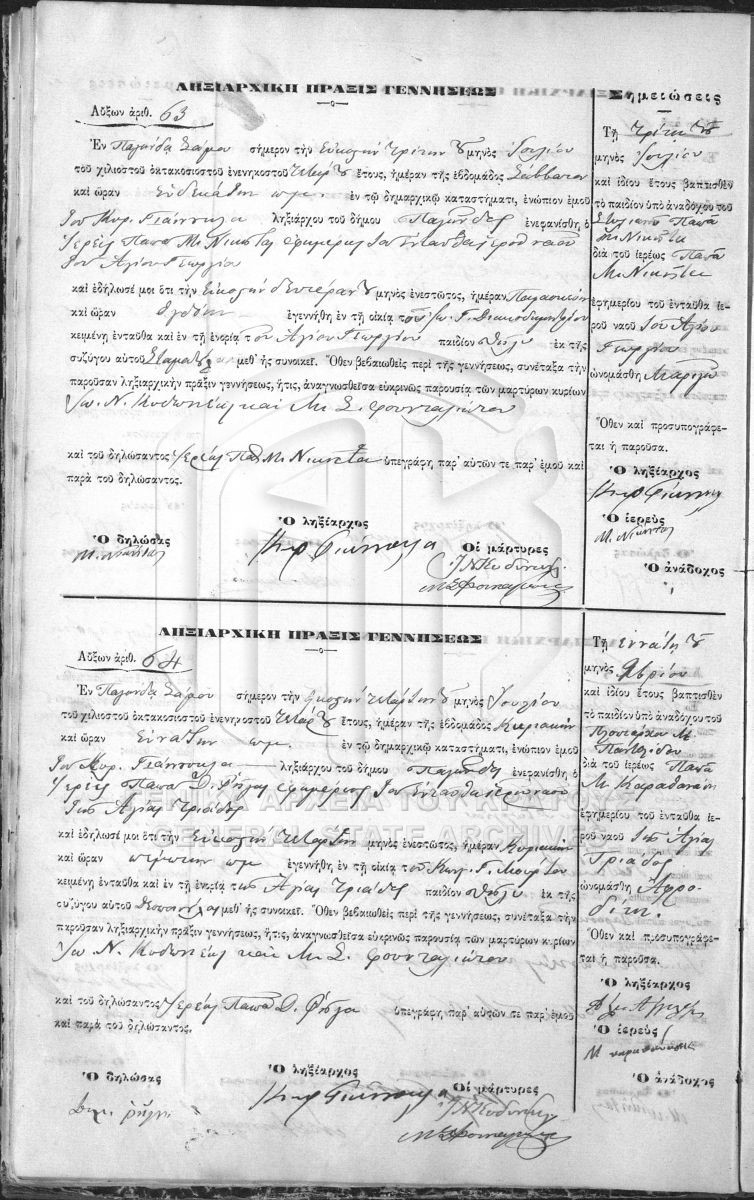 ΛΗΞΙΑΡΧΙΚΗ ΠΡΑΞΙΣ ΓΕΝΝΗΣΕΩΣ
Αὔξων ἀριθ. 63
Ἐν Παγώνδᾳ Σάμου σήμερον τὴν Εἰκοστὴν τρίτην μηνὸς Ἰουλίου
τοῦ χιλιοστοῦ ὀκτακοσιοστοῦ ἐνενηκοστοῦ ἔτους, ἡμέραν τῆς ἑβδομάδος Σάββατον
καὶ ὥραν Ἑνδεκάτην πμ. ἐν τῷ δημαρχικῷ καταστήματι, ἐνώπιον ἐμοῦ
τοῦ Κυρ. Γιάννουλα ληξιάρχου τοῦ δήμου Παγώνδα ἐνεφανίσθη ὁ
Ἱερεὺς Παπᾶ Μ. Νικήτας ἐφημέριος τοῦ ἐνταῦθα ἱεροῦ ναοῦ
τοῦ Ἁγίου Γεωργίου
καὶ ἐδήλωσέ μοι ὅτι τὴν Εἰκοστὴν δευτέραν μηνὸς ἐνεστῶτος, ἡμέραν Παρασκευὴν
καὶ ὥραν ὀγδόην ἐγεννήθη ἐν τῇ οἰκίᾳ τοῦ Ἰω. Γ.
κειμένῃ ἐνταῦθα καὶ ἐν τῇ ἐνορίᾳ τοῦ Ἁγίου Γεωργίου παιδίον θῆλυ ἐκ τῆς
συζύγου αὐτοῦ μεθ᾽ ἧς συνοικεῖ. Ὅθεν βεβαιωθεὶς περὶ τῆς γεννήσεως, συνέταξα τὴν
παροῦσαν ληξιαρχικὴν πρᾶξιν γεννήσεως, ἥτις, ἀναγνωσθεῖσα εὐκρινῶς παρουσίᾳ τῶν μαρτύρων κυρίων
Ἰω. Ν. καὶ Μ. Σ.
καὶ τοῦ δηλώσαντος Ἱερέως Παπᾶ Μ. Νικήτα ὑπεγράφη παρ᾽ αὐτῶν τε παρ᾽ ἐμοῦ καὶ
παρὰ τοῦ δηλώσαντος.
Ὁ δηλώσας
Μ. Νικήτας
Ὁ ληξίαρχος
Κυρ Γιάννουλα
Οἱ μάρτυρες
Σημειώσεις
Τῇ τρίτῃ
μηνὸς Ἰουλίου
καὶ ἰδίου ἔτους βαπτισθὲν
τὸ παιδίον ὑπὸ ἀναδόχου τοῦ
Στυλιανοῦ Παπᾶ
Μ. Νικήτα
διὰ τοῦ ἱερέως Παπᾶ
Μ. Νικήτα
ἐφημερίου τοῦ ἐνταῦθα ἱε-
ροῦ ναοῦ τοῦ Ἁγίου
Γεωργίου
ὠνομάσθη Μαριγώ
Ὅθεν καὶ προσυπογράφε-
ται ἡ παροῦσα.
Ὁ ληξίαρχος
Κυρ Γιάννουλα
Ὁ ἱερεὺς
Μ. Νικήτας
Ὁ ἀνάδοχος
ΛΗΞΙΑΡΧΙΚΗ ΠΡΑΞΙΣ ΓΕΝΝΗΣΕΩΣ
Αὔξων ἀριθ. 64
Ἐν Παγώνδᾳ Σάμου σήμερον τὴν Εἰκοστὴν τετάρτην μηνὸς Ἰουλίου
τοῦ χιλιοστοῦ ὀκτακοσιοστοῦ ἐνενηκοστοῦ ἔτους, ἡμέραν τῆς ἑβδομάδος Κυριακὴν
καὶ ὥραν Ἐνάτην πμ. ἐν τῷ δημαρχικῷ καταστήματι, ἐνώπιον ἐμοῦ
τοῦ Κυρ. Γιάννουλα ληξιάρχου τοῦ δήμου Παγώνδα ἐνεφανίσθη ὁ
Ἱερεὺς Παπᾶ Δ. Ρήγας ἐφημέριος τοῦ ἐνταῦθα ἱεροῦ ναοῦ
τῆς Ἁγίας Τριάδος
καὶ ἐδήλωσέ μοι ὅτι τὴν Εἰκοστὴν τετάρτην μηνὸς ἐνεστῶτος, ἡμέραν Κυριακὴν
καὶ ὥραν πέμπτην πμ ἐγεννήθη ἐν τῇ οἰκίᾳ τοῦ Κωνς. Γ.
κειμένῃ ἐνταῦθα καὶ ἐν τῇ ἐνορίᾳ τῆς Ἁγίας Τριάδος παιδίον θῆλυ ἐκ τῆς
συζύγου αὐτοῦ Δεσποινούλας μεθ᾽ ἧς συνοικεῖ. Ὅθεν βεβαιωθεὶς περὶ τῆς γεννήσεως, συνέταξα τὴν
παροῦσαν ληξιαρχικὴν πρᾶξιν γεννήσεως, ἥτις, ἀναγνωσθεῖσα εὐκρινῶς παρουσίᾳ τῶν μαρτύρων κυρίων
Ἰω. Ν. καὶ Μ. Σ.
καὶ τοῦ δηλώσαντος Ἱερέως Παπᾶ Δ. Ρήγα ὑπεγράφη παρ᾽ αὐτῶν τε παρ᾽ ἐμοῦ
καὶ παρὰ τοῦ δηλώσαντος.
Ὁ δηλώσας
Ὁ ληξίαρχος
Κυρ Γιάννουλα
Οἱ μάρτυρες
Τῇ ἐννάτῃ
μηνὸς
καὶ ἰδίου ἔτους βαπτισθὲν
τὸ παιδίον ὑπὸ ἀναδόχου τοῦ
Πλουτάρχου Μ.
διὰ τοῦ ἱερέως Παπᾶ
Μ. Καραθανάση
ἐφημερίου τοῦ ἐνταῦθα ἱε-
ροῦ ναοῦ τῆς Ἁγίας
Τριάδος
ὠνομάσθη Ἀφρο-
δίτη.
Ὅθεν καὶ προσυπογράφε-
ται ἡ παροῦσα.
Ὁ ληξίαρχος
Ὁ ἱερεὺς
Ὁ ἀνάδοχος
ΓΕΝΙΚΑ ΑΡΧΕΙΑ ΤΟΥ ΚΡΑΤΟΥΣ
GENERAL STATE ARCHIVES